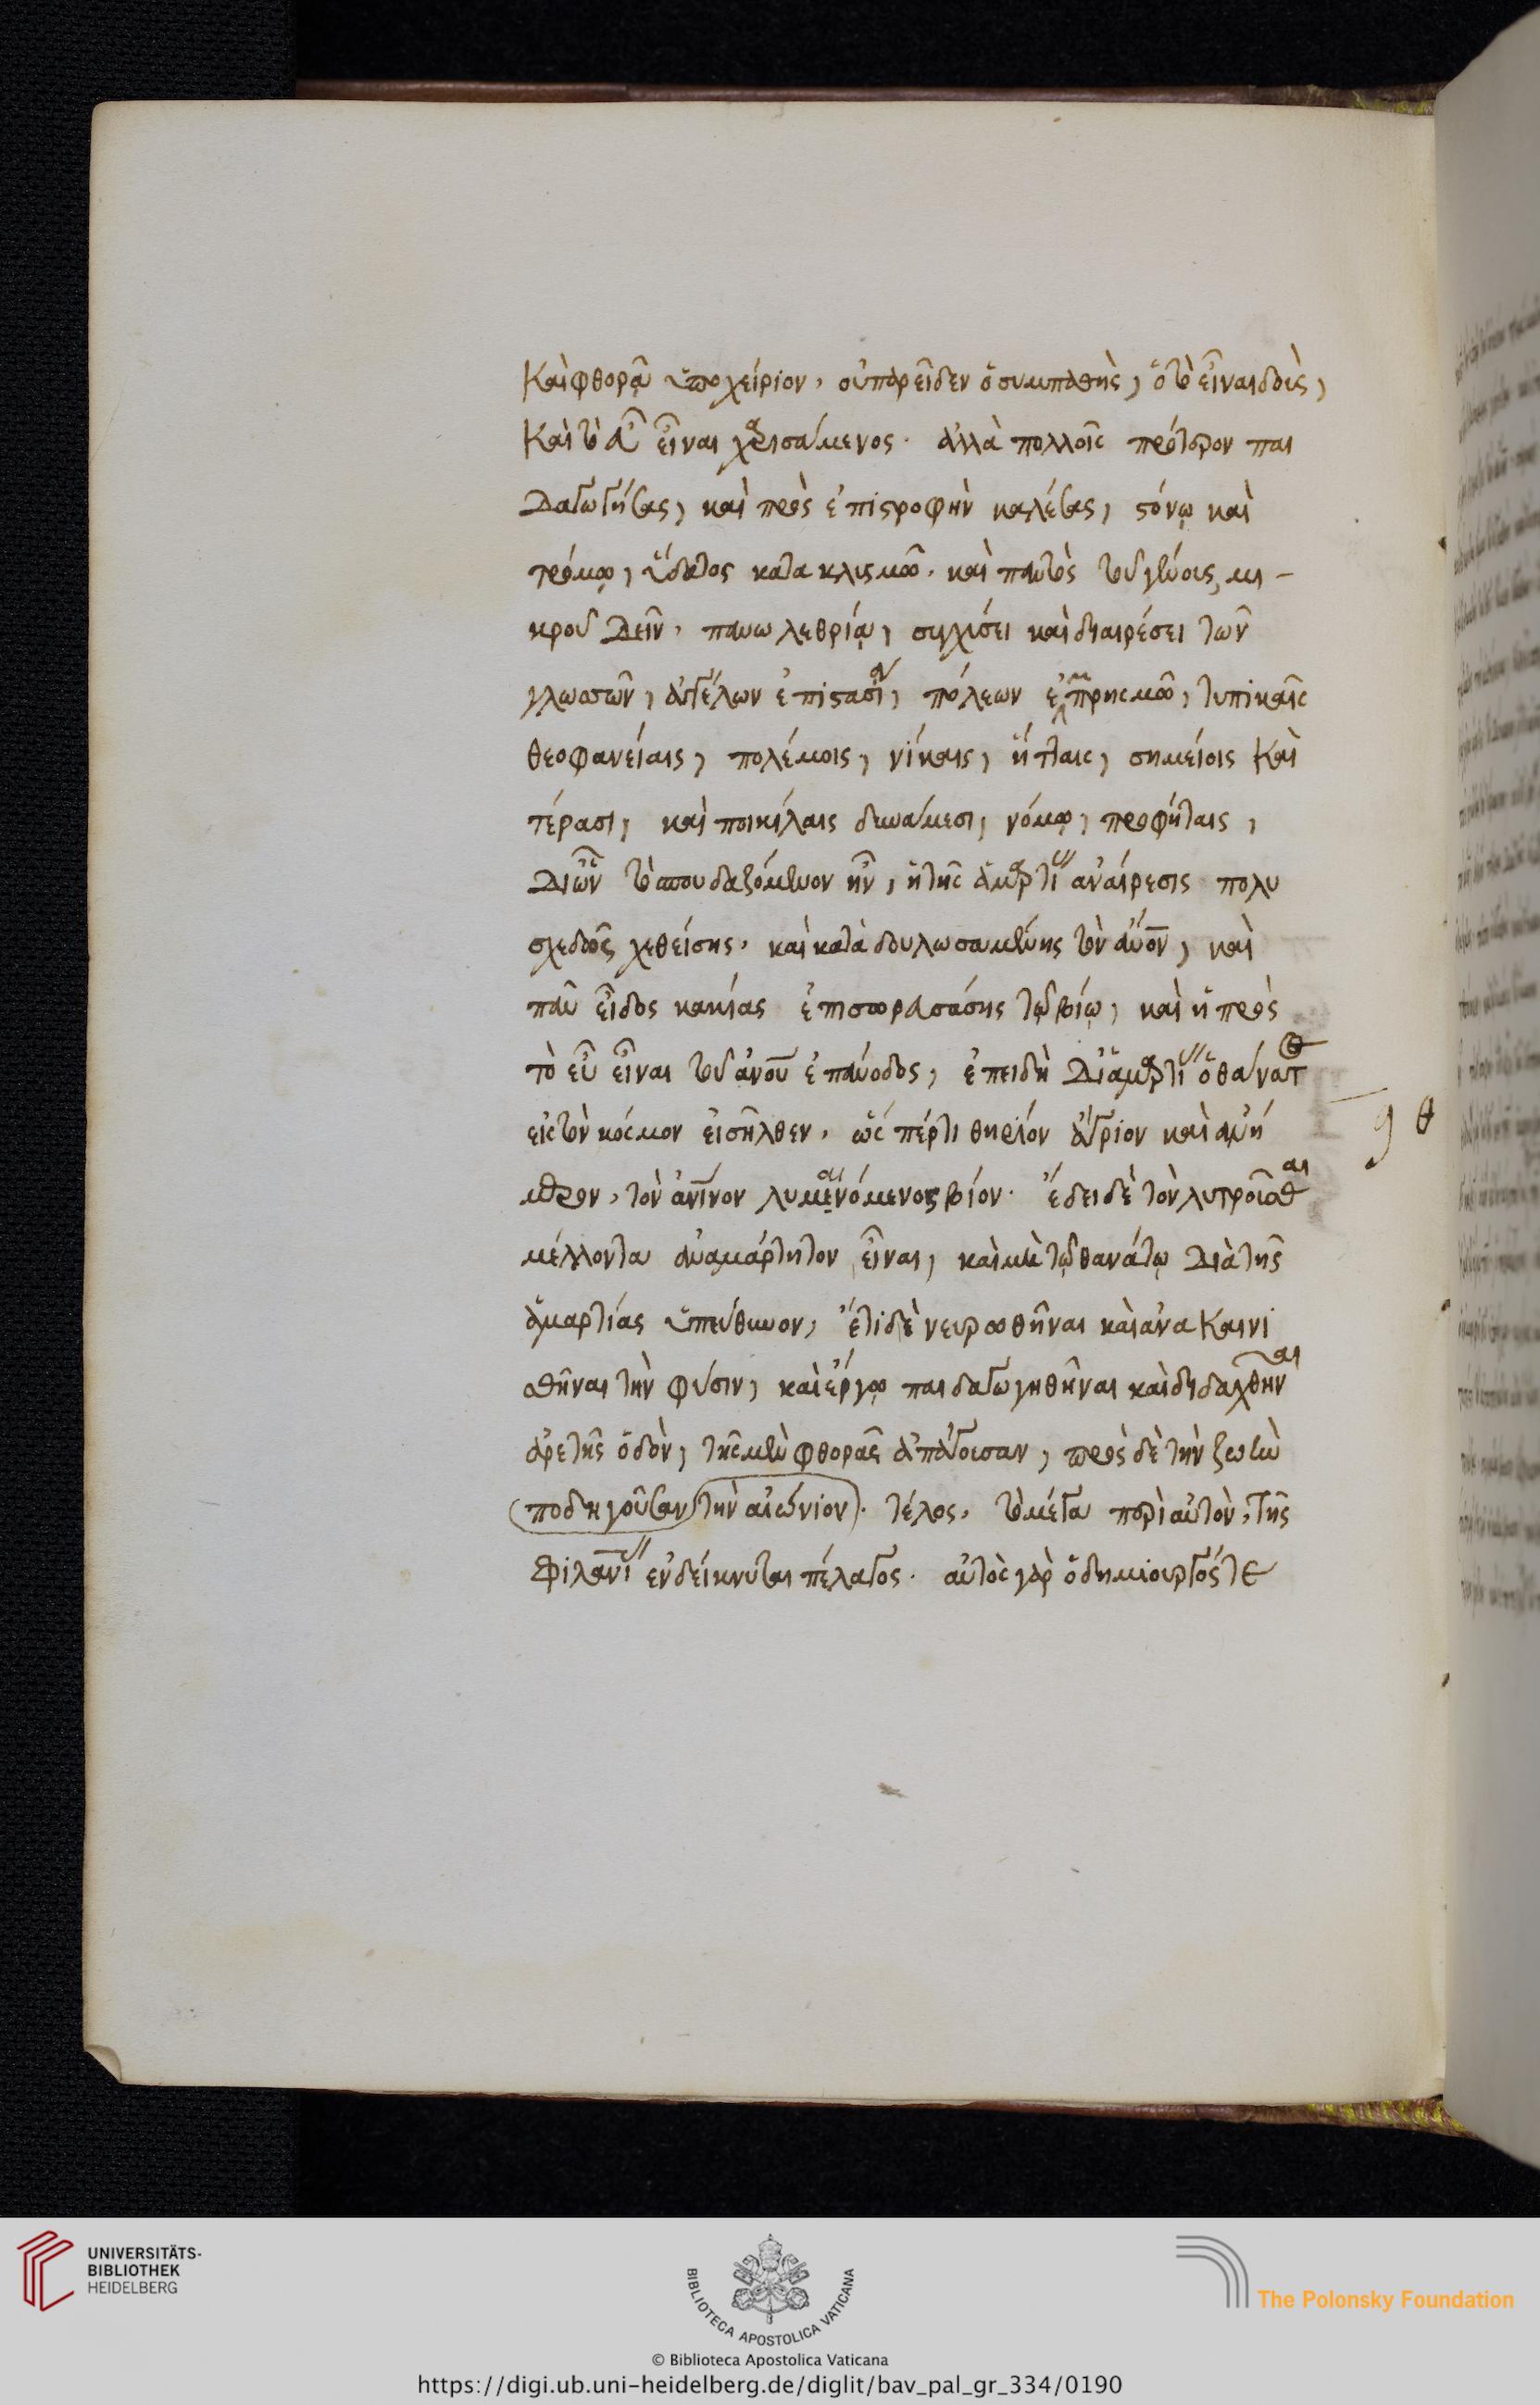 Καὶ φθορᾷ ὑποχείριον, οὐ παρεῖδεν ὁ συμπαθὴς, ὁ τὸ εἶναι δοὺς,
Καὶ τὸ εὖ εἶναι χαρισάμενος. ἀλλὰ πολλοῖς πρότερον παι
δαγωγήσας, καὶ πρὸς ἐπιστροφὴν καλέσας, στόνῳ καὶ
τρόμῳ, ὕδατος κατακλυσμῶ, καὶ παντὸς τοῦ γένους μι-
κροῦ δεῖν, πανωλεθρίᾳ, συγχύσει καὶ διαιρέσει τῶν
γλωσσῶν, ἀγγέλων ἐπιστασί, πόλεων ἐμπρησμῶ, τυπικαῖς
θεοφανείαις, πολέμοις, νίκαις, ἥτταις, σημείοις Καὶ
τέρασι, καὶ ποικίλαις δυνάμεσι, νόμῳ, προφήταις,
Δι' ὧν τὸ σπουδαζόμενον ἦν, ἡ τῆς ἁμαρτί ἀναίρεσις πολυ
σχεδῶς χεθείσης, καὶ καταδουλωσαμένης τὸν ἄνον, καὶ
πᾶν εἶδος κακίας ἐπισωρασάσης τῷ βίῳ, καὶ ἡ πρὸς
τὸ εὖ εἶναι τοῦ ἀνου ἐπάνοδος, ἐπειδὴ Δι' ἁμαρτί ὁ θάνατ
εἰς τὸν κόσμον εἰσῆλθεν, ὥσπέρ τι θηρίον ἄγριον καὶ ἀνή
μερον, τὸν ἀνινον λυμαινόμενος βίον. ἔδει δὲ τὸν λυτροῦσθαι
μέλλοντα ἀναμάρτητον εἶναι, καὶ μὴ τῷ θανάτῳ Διὰ τῆς
ἁμαρτίας ὑπεύθυνον, ἔτι δὲ νευρωθῆναι καὶ ἀνα Καινι
σθῆναι τὴν φύσιν, καὶ ἔργῳ παιδαγωγηθῆναι καὶ διδαχθῆναι
ἀρετῆς ὁδὸν, τῆς μὲν φθορᾶς ἀπάγουσαν, πρὸς δὲ τὴν ζωὴν
(ποδηγοῦσαν) (τὴν αἰώνιον). τέλος, τὸ μέγα περὶ αὐτὸν, τῆς
Φιλανί ἐνδείκνυται πέλαγος. αὐτὸς γὰρ ὁ δημιουργός τε
θ
UNIVERSITÄTS-
BIBLIOTHEK
HEIDELBERG
BIBLIOTECA APOSTOLICA VATICANA
The Polonsky Foundation
© Biblioteca Apostolica Vaticana
https://digi.ub.uni-heidelberg.de/diglit/bav_pal_gr_334/0190